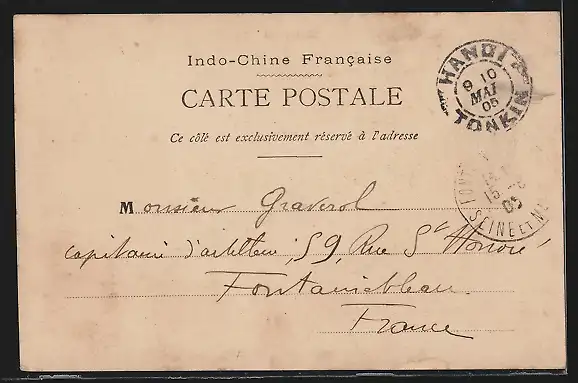 Indo-Chine Française
CARTE POSTALE
Ce côté est exclusivement réservé à l'adresse
HANOI
9 10
MAI
05
TONKIN
15
05
SEINE ET M
Monsieur Graverol
capitaine d'artillerie, 59, Rue St Honoré,
Fontainebleau
France